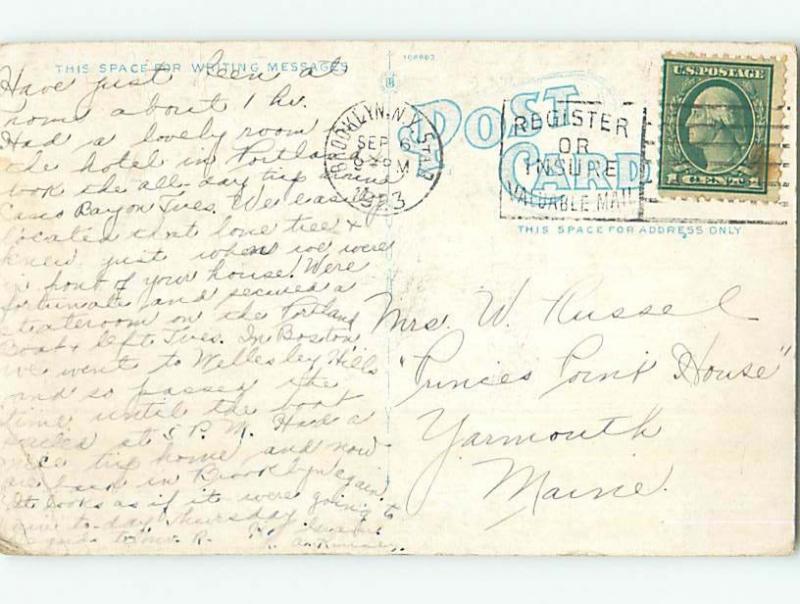 THIS SPACE FOR WRITING MESSAGES
Have just been at
home about 1 hr.
Had a lovely room
the hotel in Portland
took the all-day trip
Casco Bay on Tues. We easily
located that lone tree &
knew just when we were
in front of your house. Were
fortunate and secured a
stateroom on the Portland
Boat & left Tues. In Boston
we went to Wellesley Hills
and so passed the
time until the boat
sailed at 5 P.M. Had a
nice trip home and now
are back in Brooklyn again.
It looks as if it were going to
rain to-day, Thursday.
Regards to Mr. R.
POST
CARD
BROOKLYN, N.Y. STA.
SEP 6
PM
1923
REGISTER
OR
INSURE
VALUABLE MAIL
U.S. POSTAGE
1 CENT 1
THIS SPACE FOR ADDRESS ONLY
Mrs. W. Russel
"Princes Point House"
Yarmouth
Maine.